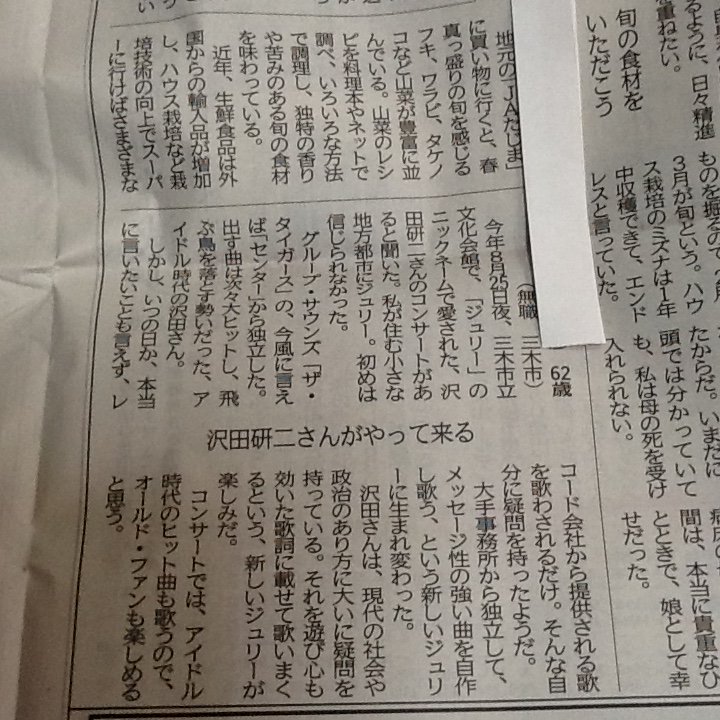 るように、日々精進
重ねたい。
旬の食材を
いただこう
地元の「JAたじま」
に買い物に行くと、春
真っ盛りの旬を感じる
フキ、ワラビ、タケノ
コなど山菜が豊富に並
んでいる。山菜のレシ
ピを料理本やネットで
調べ、いろいろな方法
で調理し、独特の香り
や苦みのある旬の食材
を味わっている。
近年、生鮮食品は外
国からの輸入品が増加
し、ハウス栽培など栽
培技術の向上でスーパ
ーに行けばさまざまな
ものを掘るので、
3月が旬という。ハウ
ス栽培のミズナは1年
中収穫できて、エンド
レスと言っていた。
たからだ。いまだに
頭では分かっていて
も、私は母の死を受け
入れられない。
間は、本当に貴重なひ
とときで、娘として幸
せだった。
沢田研二さんがやって来る
62歳
(無職 三木市)
今年8月25日夜、三木市立
文化会館で、「ジュリー」の
ニックネームで愛された、沢
田研二さんのコンサートがあ
ると聞いた。私が住む小さな
地方都市にジュリー。初めは
信じられなかった。
グループ・サウンズ「ザ・
タイガース」の、今風に言え
ば「センター」から独立した。
出す曲は次々大ヒットし、飛
ぶ鳥を落とす勢いだった、ア
イドル時代の沢田さん。
しかし、いつの日か、本当
に言いたいことも言えず、レ
コード会社から提供される歌
を歌わされるだけ。そんな自
分に疑問を持ったようだ。
大手事務所から独立して、
メッセージ性の強い曲を自作
し歌う、という新しいジュリ
ーに生まれ変わった。
沢田さんは、現代の社会や
政治のあり方に大いに疑問を
持っている。それを遊び心も
効いた歌詞に載せて歌いまく
るという、新しいジュリーが
楽しみだ。
コンサートでは、アイドル
時代のヒット曲も歌うので、
オールド・ファンも楽しめる
と思う。